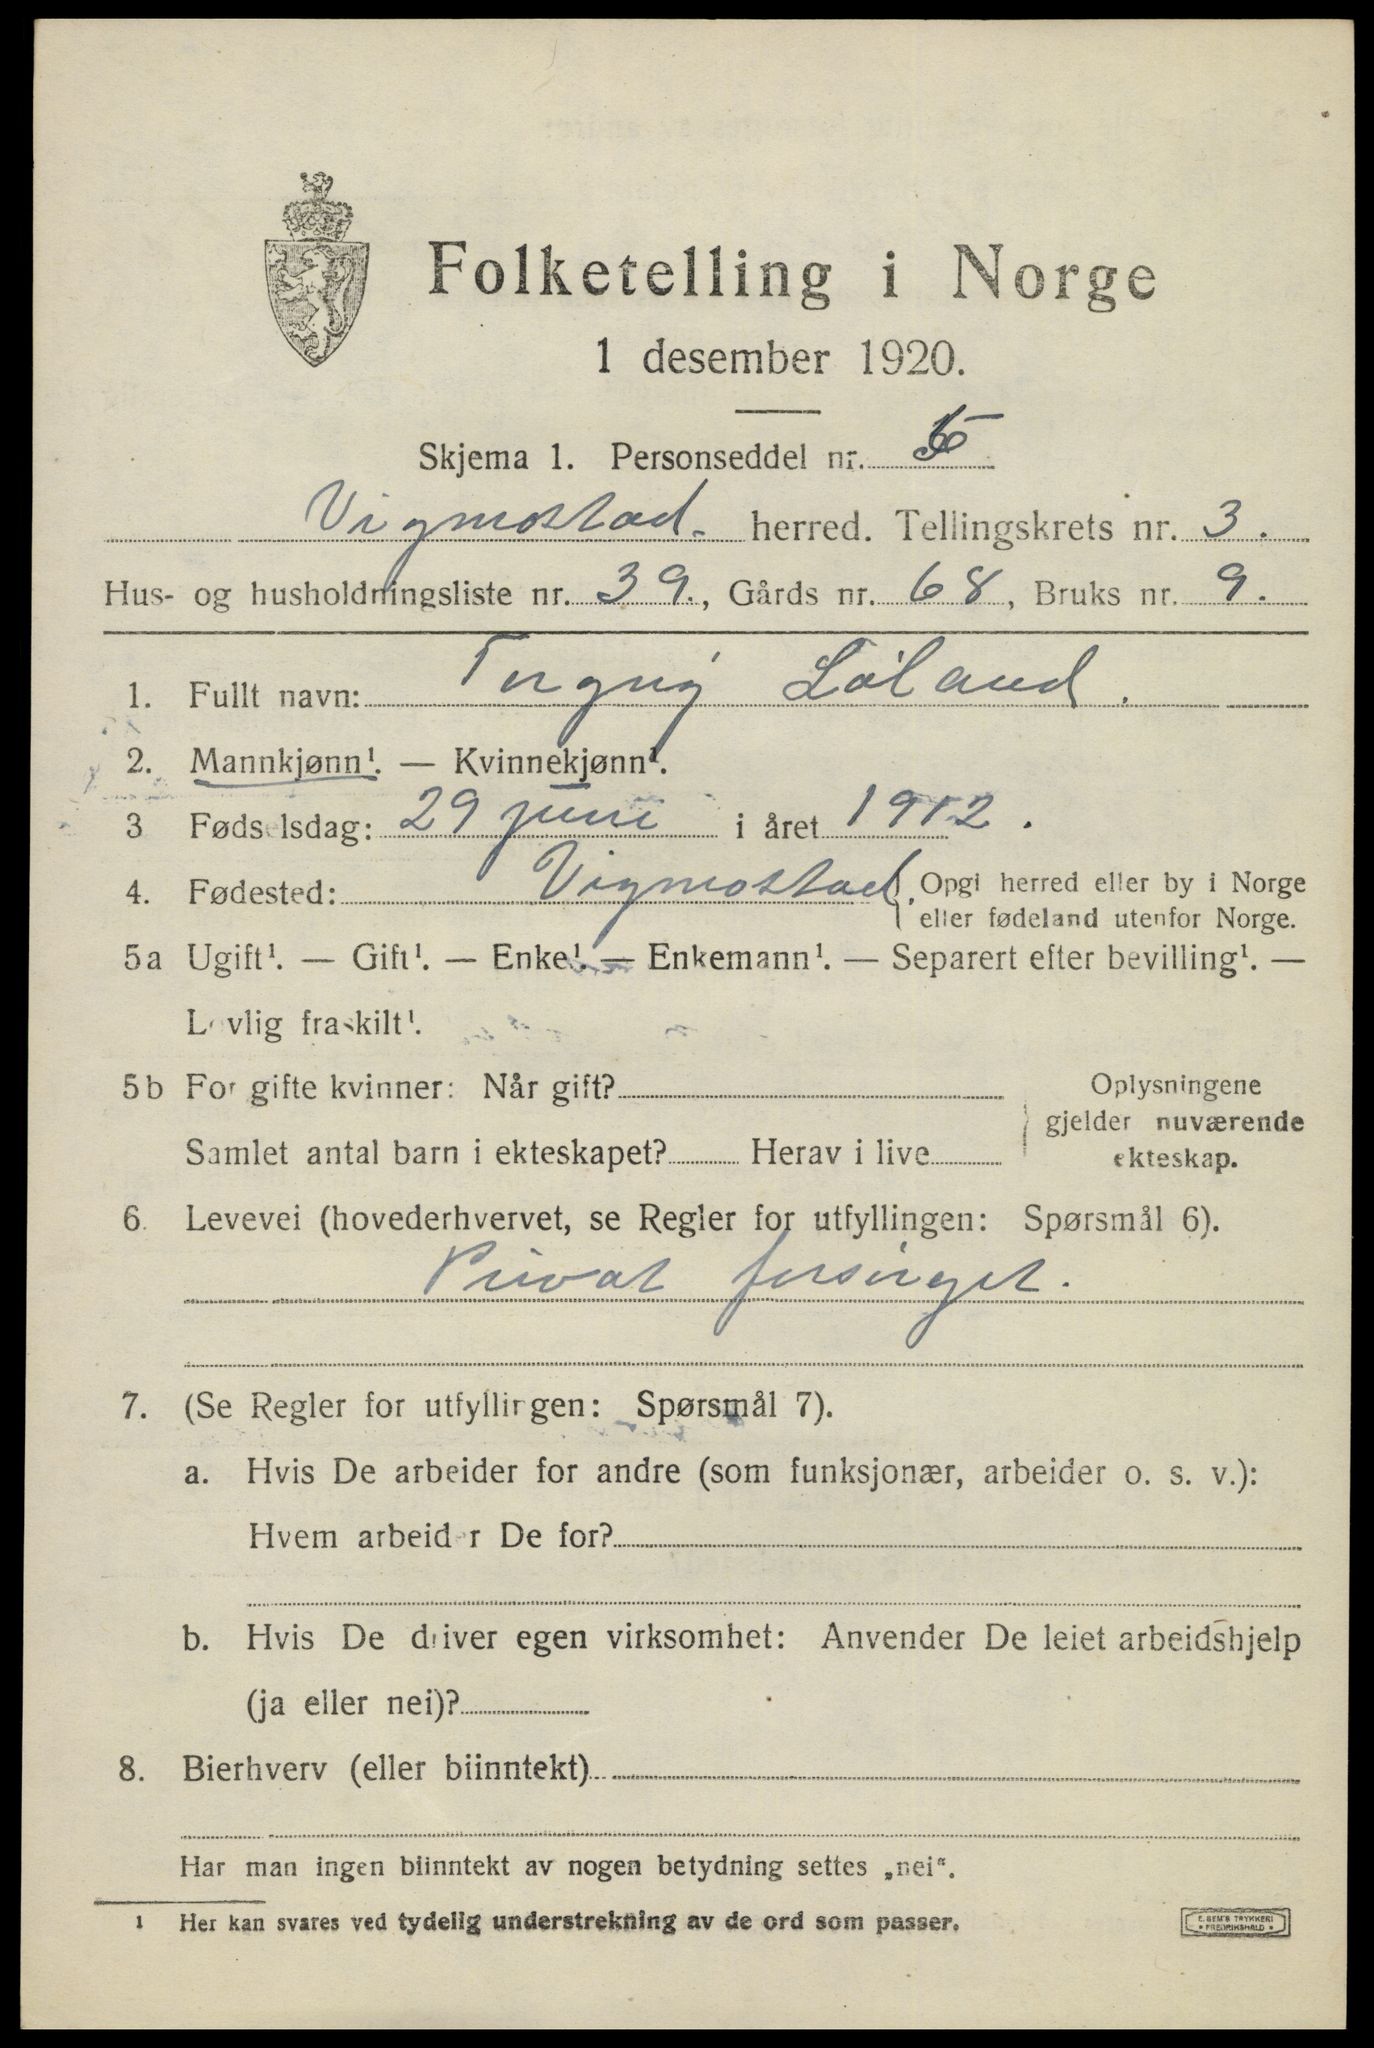 Folketelling i Norge
1 desember 1920.
Skjema 1. Personseddel nr.
Vigmostad. herred. Tellingskrets nr. 3.
Hus- og husholdningsliste nr. 39., Gårds nr. 68, Bruks nr. 9.
1. Fullt navn: Løland.
2. Mannkjønn¹. — Kvinnekjønn¹.
3 Fødselsdag: 29 juni i året 1912.
4. Fødested: Vigmostad. Opgi herred eller by i Norge
eller fødeland utenfor Norge.
5a Ugift¹. — Gift¹. — Enke¹. — Enkemann¹. — Separert efter bevilling¹. —
Lovlig fraskilt¹.
5b For gifte kvinner: Når gift?
Samlet antal barn i ekteskapet? Herav i live
Oplysningene
gjelder nuværende
ekteskap.
6. Levevei (hovederhvervet, se Regler for utfyllingen: Spørsmål 6).
Privat forsørget.
7. (Se Regler for utfyllingen: Spørsmål 7).
a. Hvis De arbeider for andre (som funksjonær, arbeider o. s. v.):
Hvem arbeider De for?
b. Hvis De driver egen virksomhet: Anvender De leiet arbeidshjelp
(ja eller nei)?
8. Bierhverv (eller biinntekt)
Har man ingen biinntekt av nogen betydning settes „nei“.
1 Her kan svares ved tydelig understrekning av de ord som passer.
E. SEM'S TRYKKERI
• FREDRIKSHALD •